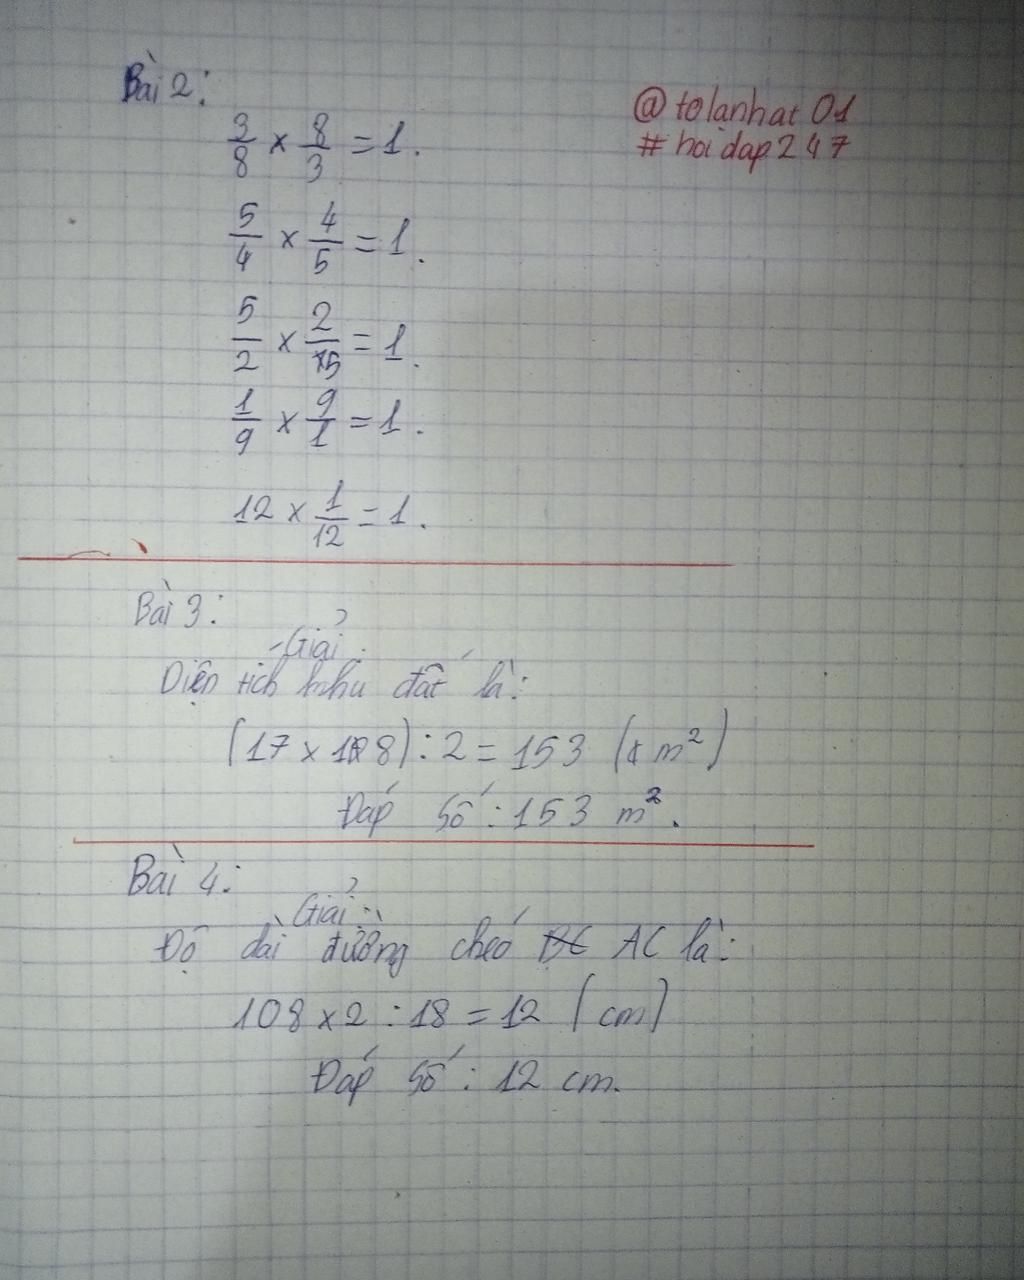 Bài 2:
@tolanhat 01
# hoidap247
3/8 × 8/3 = 1.
5/4 × 4/5 = 1.
5/2 × 2/5 = 1.
1/9 × 9/1 = 1.
12 × 1/12 = 1.
Bài 3:
Giải:
Diện tích khu đất là:
(17 × 18) : 2 = 153 (m²)
Đáp số: 153 m².
Bài 4:
Giải:
Độ dài đường chéo AC là:
108 × 2 : 18 = 12 (cm)
Đáp số: 12 cm.